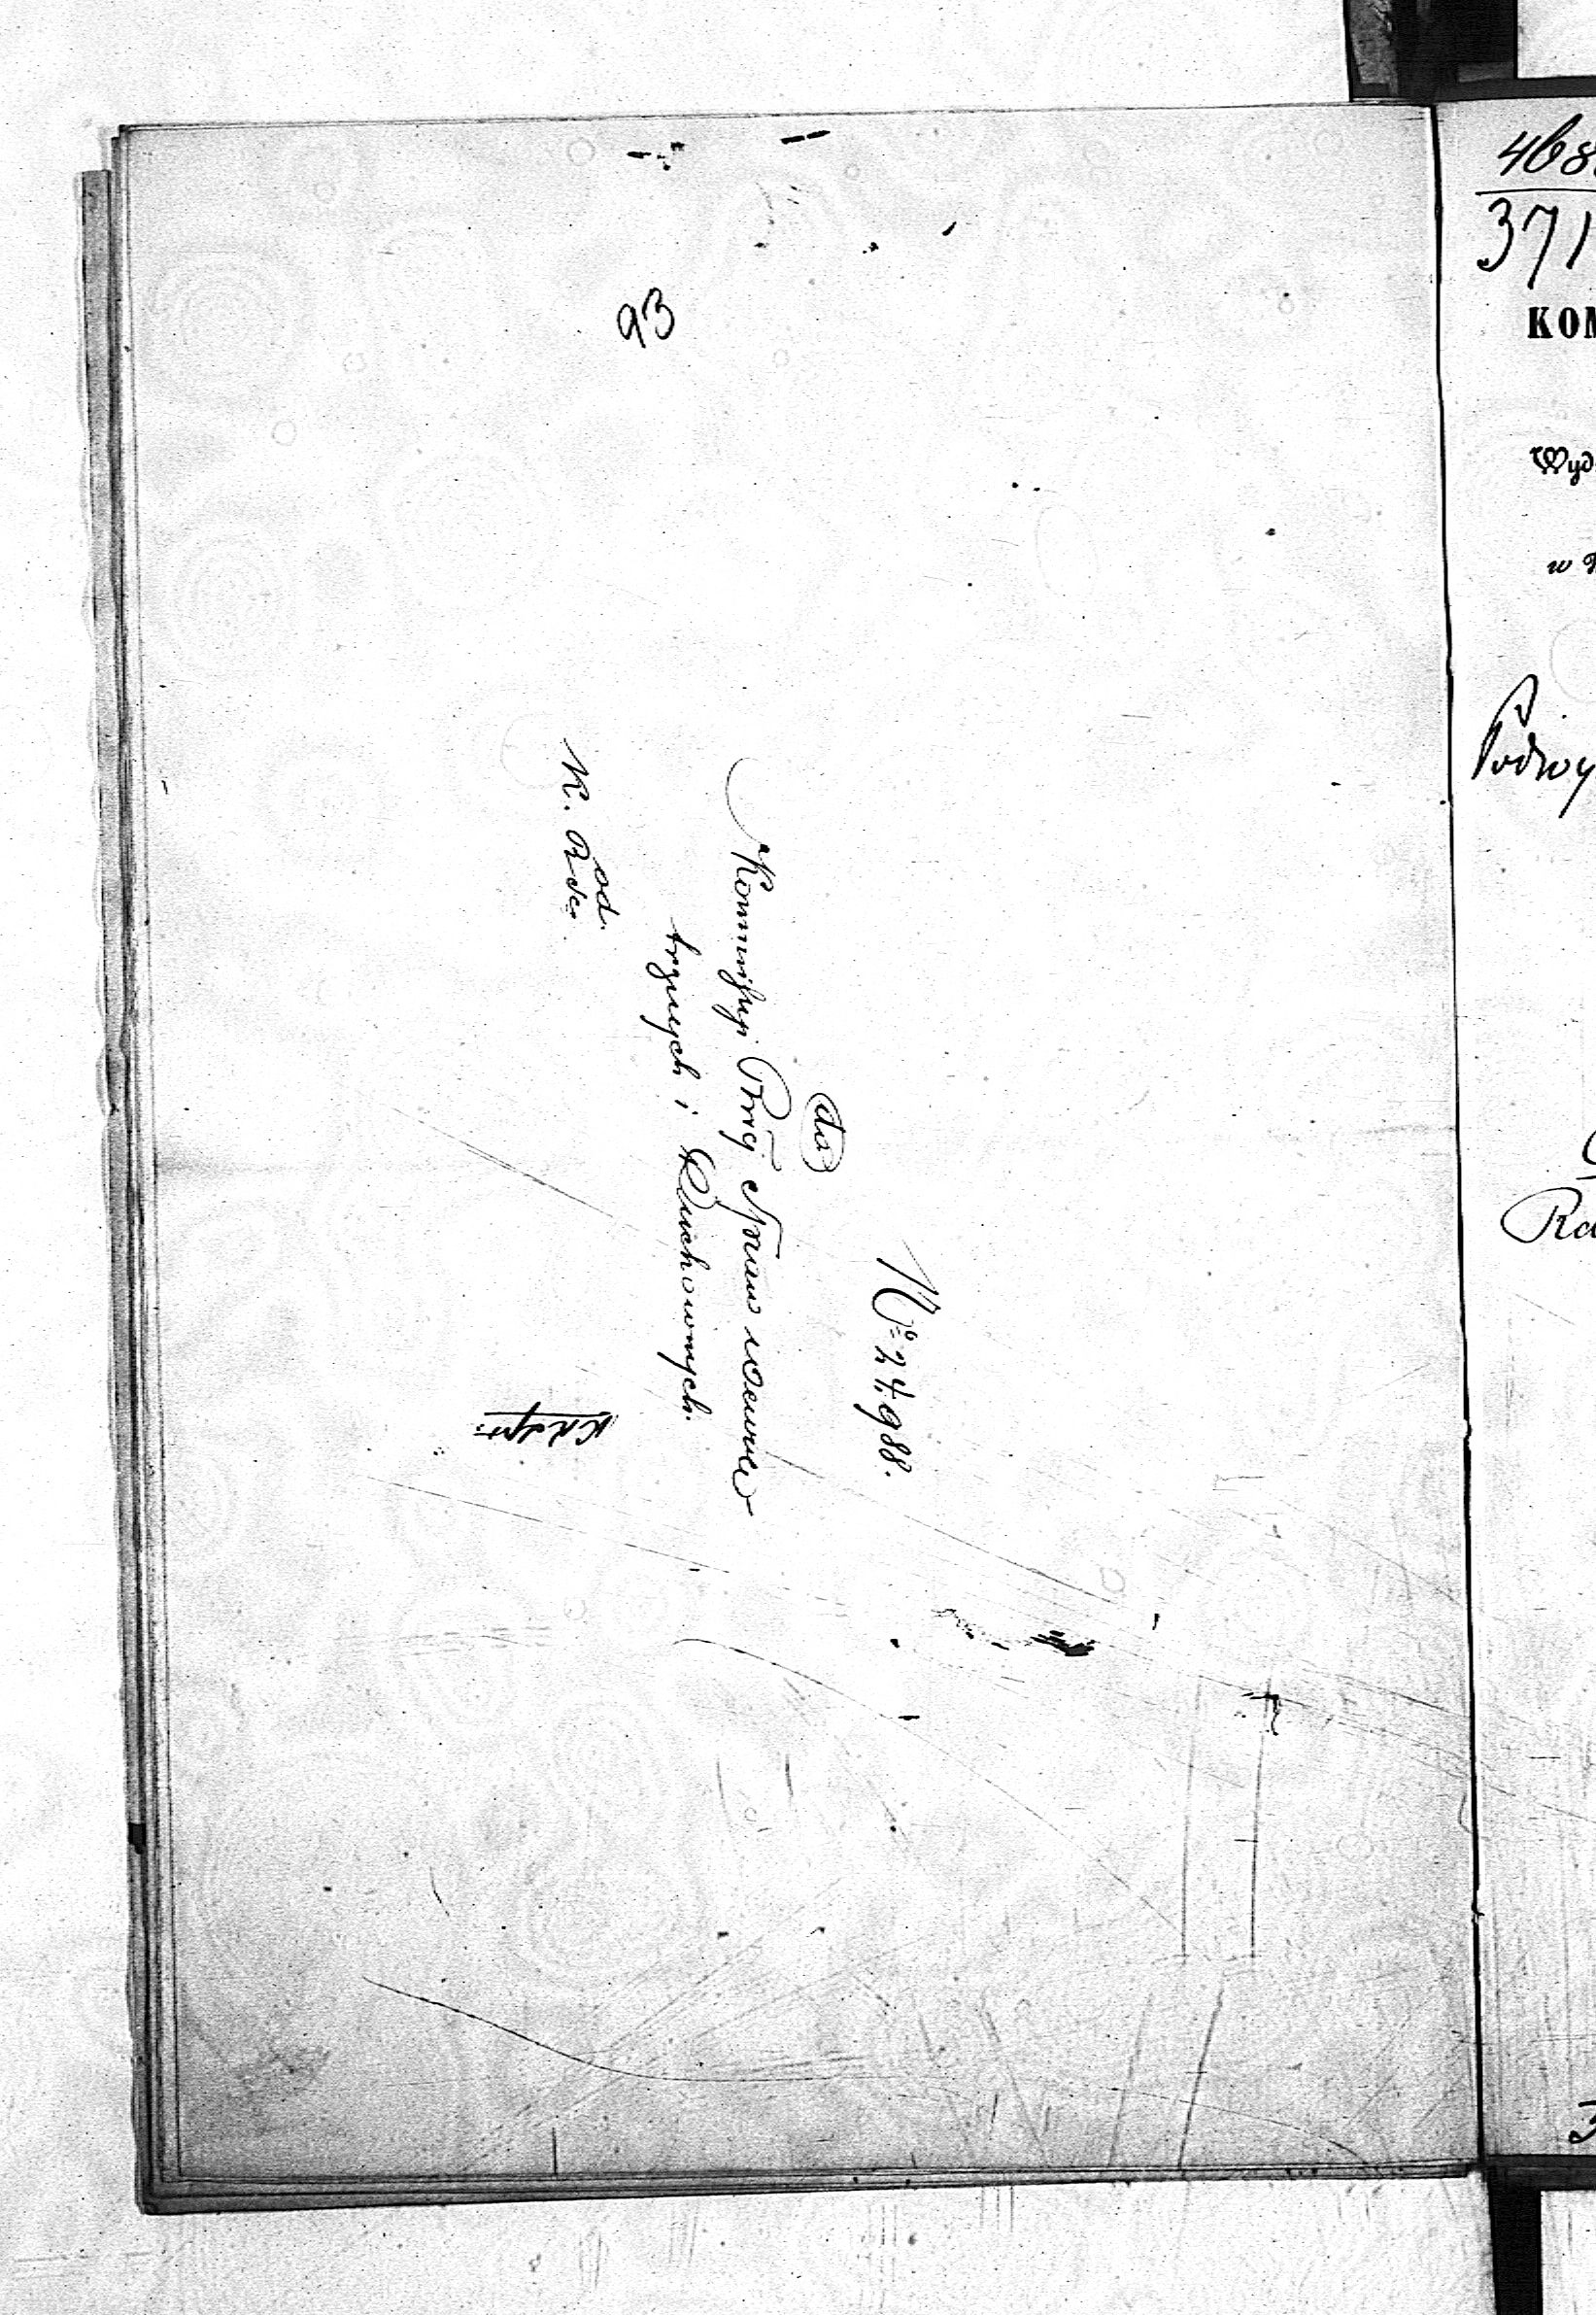 93
№ 24,988.
do
Kommissyi Rząej Spraw Wewnę
trznych i Duchownych.
od
K. Rdcy
468
371
KOM
Wyd
w
Podwoy
Ra
3